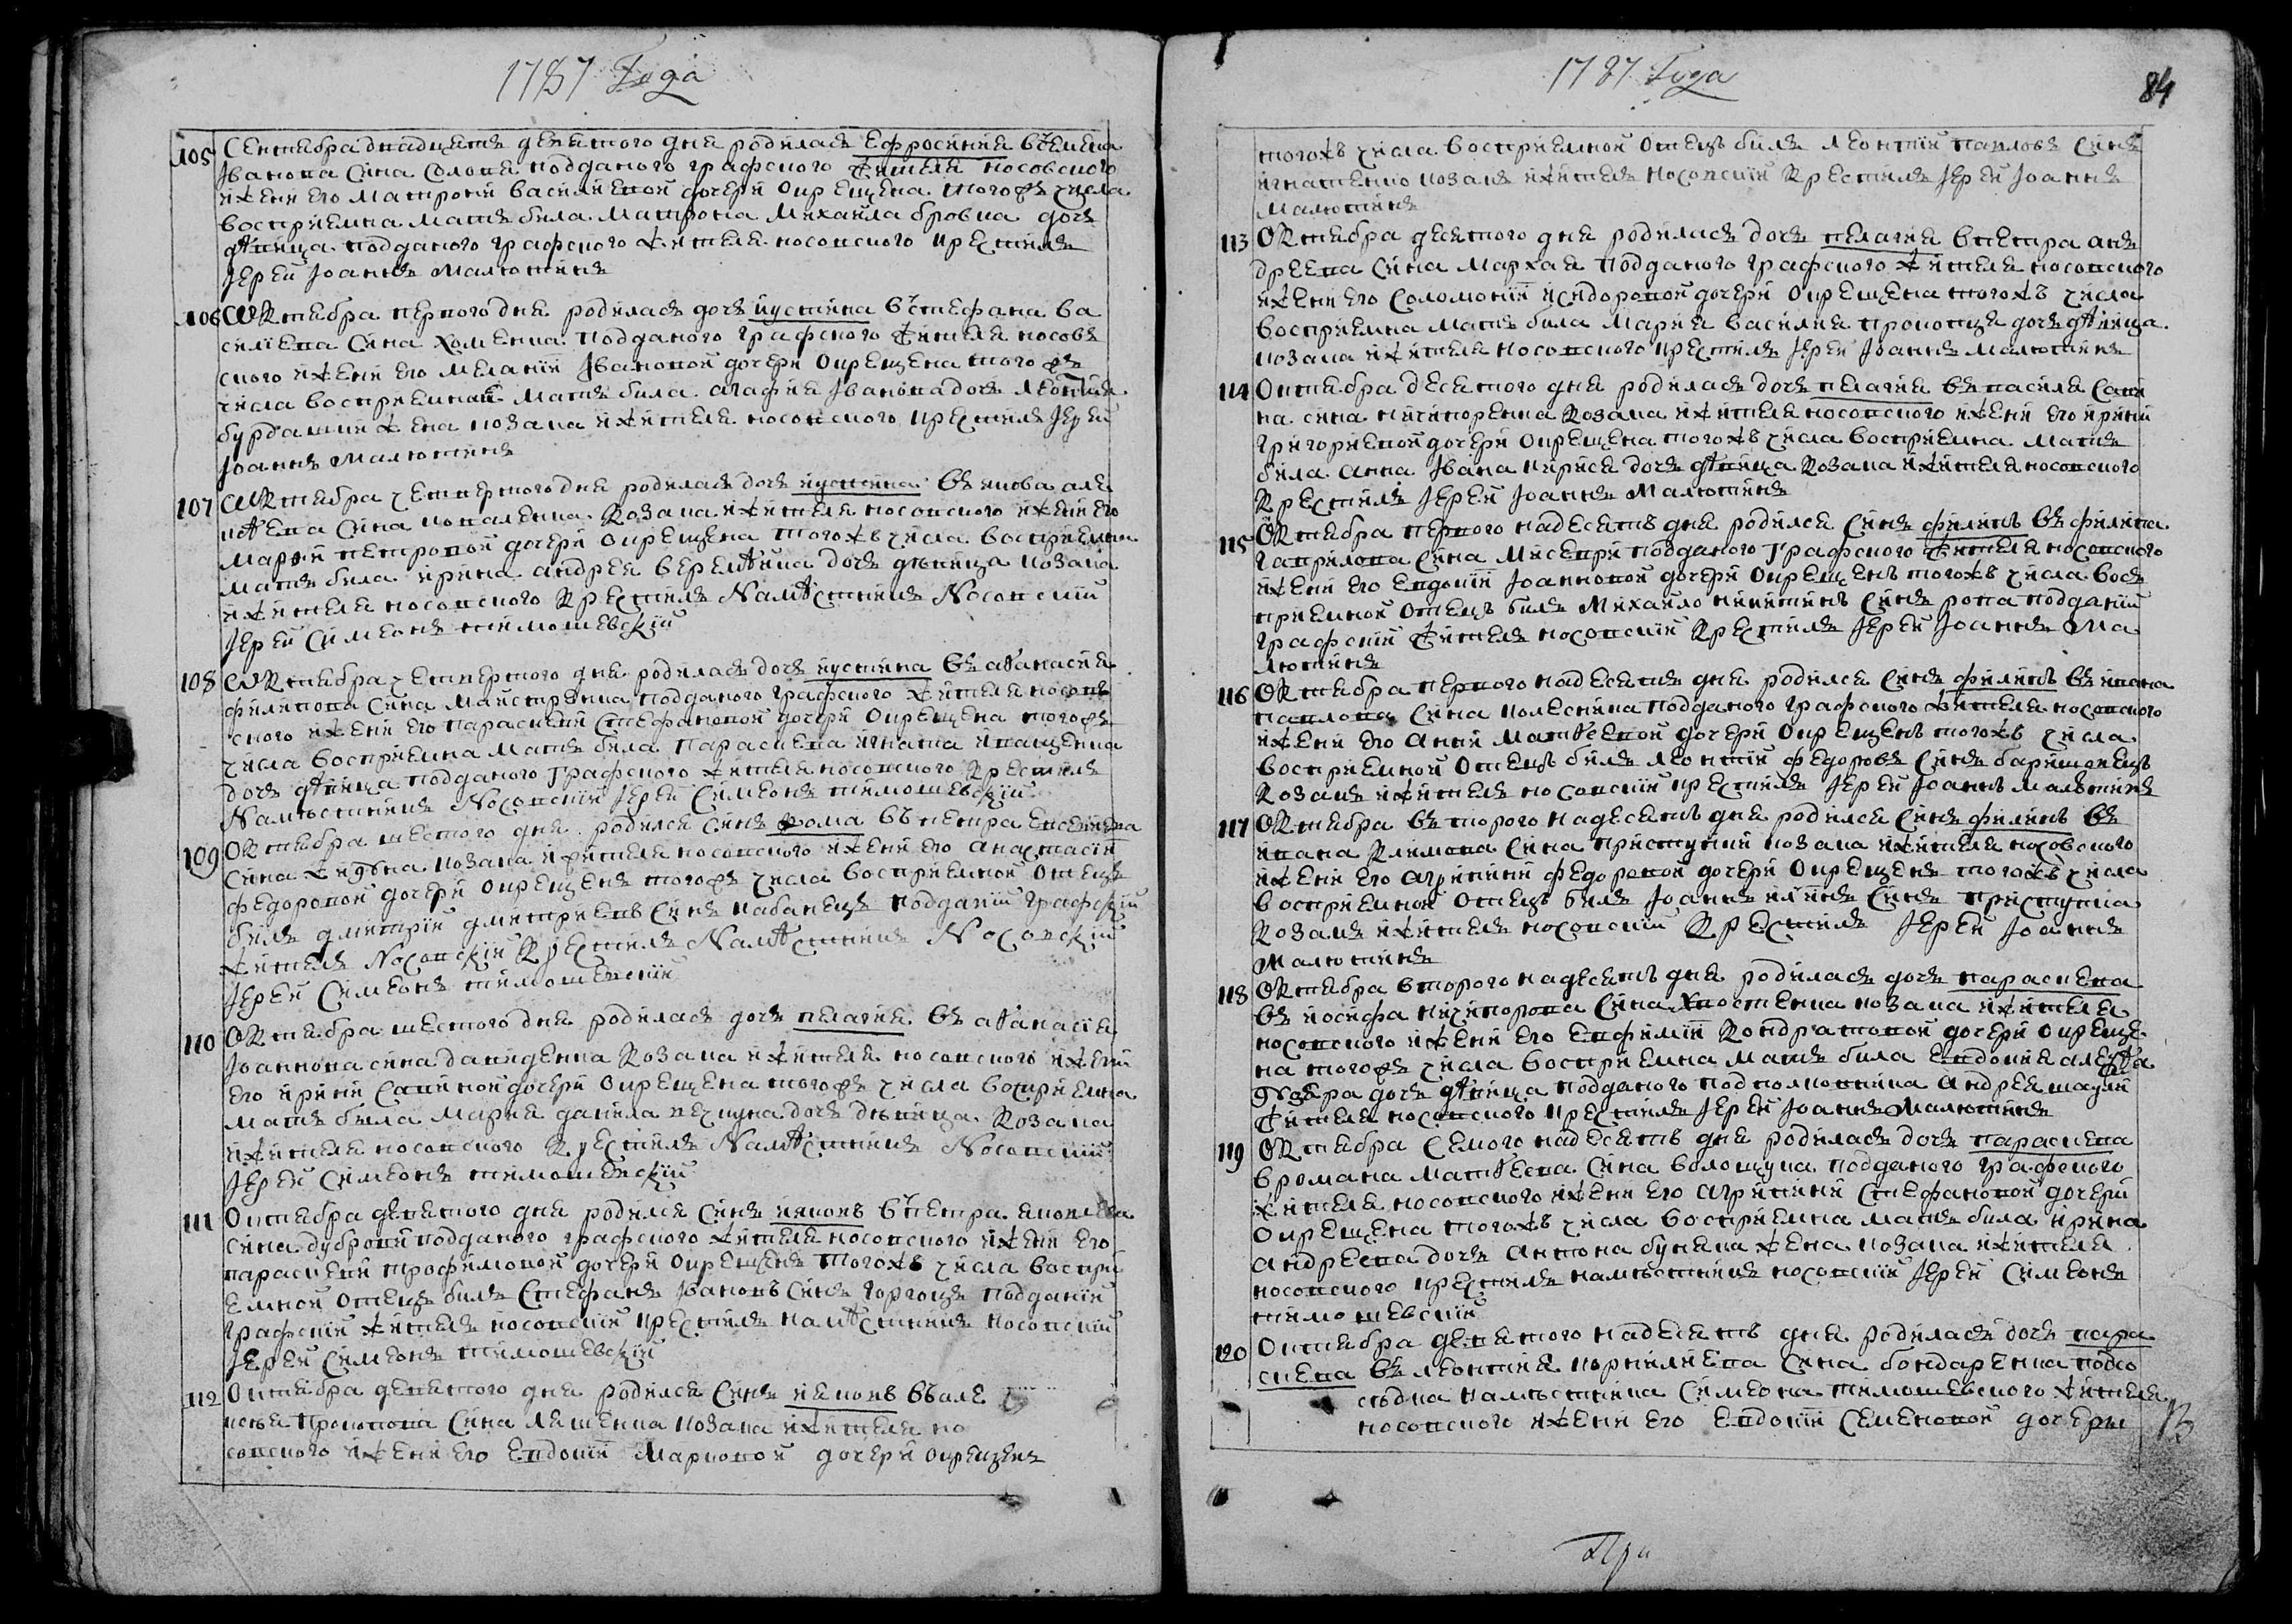 1787 Года
105 Сентября двадцять девятого дня родилась Ефросинія въ Емелиа
Іванова сина Солони подданого графского жителя носовского
и жени его Матрони василиевой дочери окрещена того же числа
восприемна мать била Матрона Михайла бровка дочь
дѣвица подданого графского жителя носовского крестилъ
Іерей Іоаннъ Малютинъ
106 Октября первого дня родилась дочь иустина въ стефана ва
силіева сина Хоменка подданого графского жителя носовъ
ского и жени его Меланіи Івановой дочери окрещена того же
числа восприемной мать била агафия Іванова дочь Леонтия
бурдаши жена козака и жителя носовского крестилъ Іерей
Іоаннъ Малютинъ
107 Октября четвертого дня родилась дочь иустина въ якова але
ксѣева сина коваленка козака и жителя носовского и жени его
Марїи петровой дочери окрещена того жъ числа восприемна
мать била ирина андрея веремѣика дочь дѣвица козака
и жителя носовского крестилъ Намѣстникъ Носовскій
Іерей Симеонъ тимошевскій
108 Октября четвертого дня родилась дочь иустина въ аѳанасия
филипова сина Маистренка подданого графского жителя носовъ
ского и жени его параскеви Стефановой дочери окрещена того же
числа восприемна мать била параскева игната иващенка
дочь дѣвица подданого графского жителя носовского крестилъ
Намѣстникъ Носовскіи Іерей Симеонъ тимошевскіи
109 Октября шестого дня родился синъ фома въ петра евсеиева
сина жидбка козака и жителя носовского и жени его анастасіи
федоровой дочери окрещенъ того же числа восприемной отецъ
билъ дмитріи дмитріевъ синъ кабанецъ подданіи графскіи
житель Носовскіи крестилъ Намѣстникъ Носовскіи
Іерей Симеонъ тимошевскіи
110 Октября шестого дня родилась дочь пелагия въ аѳанасия
Іоаннова сина давиденка козака и жителя носовского и жени
его ирини Савиной дочери окрещена того же числа восприемна
мать била Мария данила пекуна дочь дѣвица козака
и жителя носовского крестилъ Намѣстникъ Носовскіи
Іерей Симеонъ тимошевскіи
111 Октября девятого дня родился синъ иаковъ въ петра яковлева
сина дубровки подданого графского жителя носовского и жени его
параскеви трофимовой дочери окрещенъ того жъ числа воспри
емной отецъ билъ Стефанъ Івановъ синъ горгоцъ подданіи
графскіи житель носовскіи крестилъ намѣстникъ носовскіи
Іерей Симеонъ тимошевскіи
112 Октября девятого дня родился синъ иаковъ въ але
ксѣя прокопова сина ляшенка козака и жителя но
совского и жени его Евдокіи Марковой дочери окрещенъ
1787 Года
84
того жъ числа восприемной отецъ билъ леонтіи павловъ синъ
игнатенко козакъ и житель носовскіи крестилъ Іерей Іоаннъ
Малютинъ
113 Октября десятого дня родилась дочь пелагия в петра анъ
дреева сина Мархая подданого графского жителя носовского
и жени его Соломоніи исидоровой дочери окрещена того жъ числа
восприемна мать била Мария василия прокопця дочь дѣвица
козака и жителя носовского крестилъ Іерей Іоаннъ Малютинъ
114 Октября десятого дня родилась дочь пелагия въ василя Сави
на сина ничипоренка козака и жителя носовского и жени его ирини
григориевой дочери окрещена того жъ числа восприемна мать
била анна Івана кирися дочь дѣвица козака и жителя носовского
крестилъ Іерей Іоаннъ Малютинъ
115 Октября первого надесять дня родился синъ филипъ въ филипа
гаврилова сина Мисеври подданого графского жителя носовского
и жени его Евдокіи Іоанновой дочери окрещенъ того жъ числа вос
приемной отецъ билъ Михайло никитинъ синъ рола подданіи
графскіи житель носовскіи крестилъ Іерей Іоаннъ Ма
лютинъ
116 Октября первого надесять дня родился синъ филипъ въ ивана
павлова сина колесника подданого графского жителя носовского
и жени его анни Матѳеевой дочери окрещенъ того жъ числа
восприемной отецъ билъ леонтіи федоровъ синъ баришовецъ
козакъ и житель носовскіи крестилъ Іерей Іоаннъ Малютинъ
117 Октября второго надесять дня родился синъ филипъ въ
ивана климова сина приступки козака и жителя носовского
и жени его агрипини федоровой дочери окрещенъ того жъ числа
восприемной отецъ билъ Іоаннъ илїинъ синъ приступка
козакъ и житель носовскіи крестилъ Іерей Іоаннъ
Малютинъ
118 Октября второго надесять дня родилась дочь параскева
въ иосифа ничипорова сина Хвостенка козака и жителя
носовского и жени его Евфиміи Кондратовой дочери окреще
на того же числа восприемна мать била Евдокия алеѯѣя
дочь дѣвица подданого подполковника андрея
жителя носовского крестилъ Іерей Іоаннъ Малютинъ
119 Октября семого надесять дня родилась дочь параскева
в романа матѳеева сина волощука подданого графского
жителя носовского и жени его агрипини Стефановой дочери
окрещена того жъ числа восприемна мать била ирина
андреева дочь антона буняка жена козака и жителя
носовского крестилъ намѣстникъ носовскіи Іерей Симеонъ
тимошевскіи
120 Октября девятого надесять дня родилась дочь пара
скева въ леонтия корнилиева сина бондаренка подсо
сѣдка намѣстника Симеона тимошевского жителя
носовского и жени его Евдокіи Семеновой дочери
При